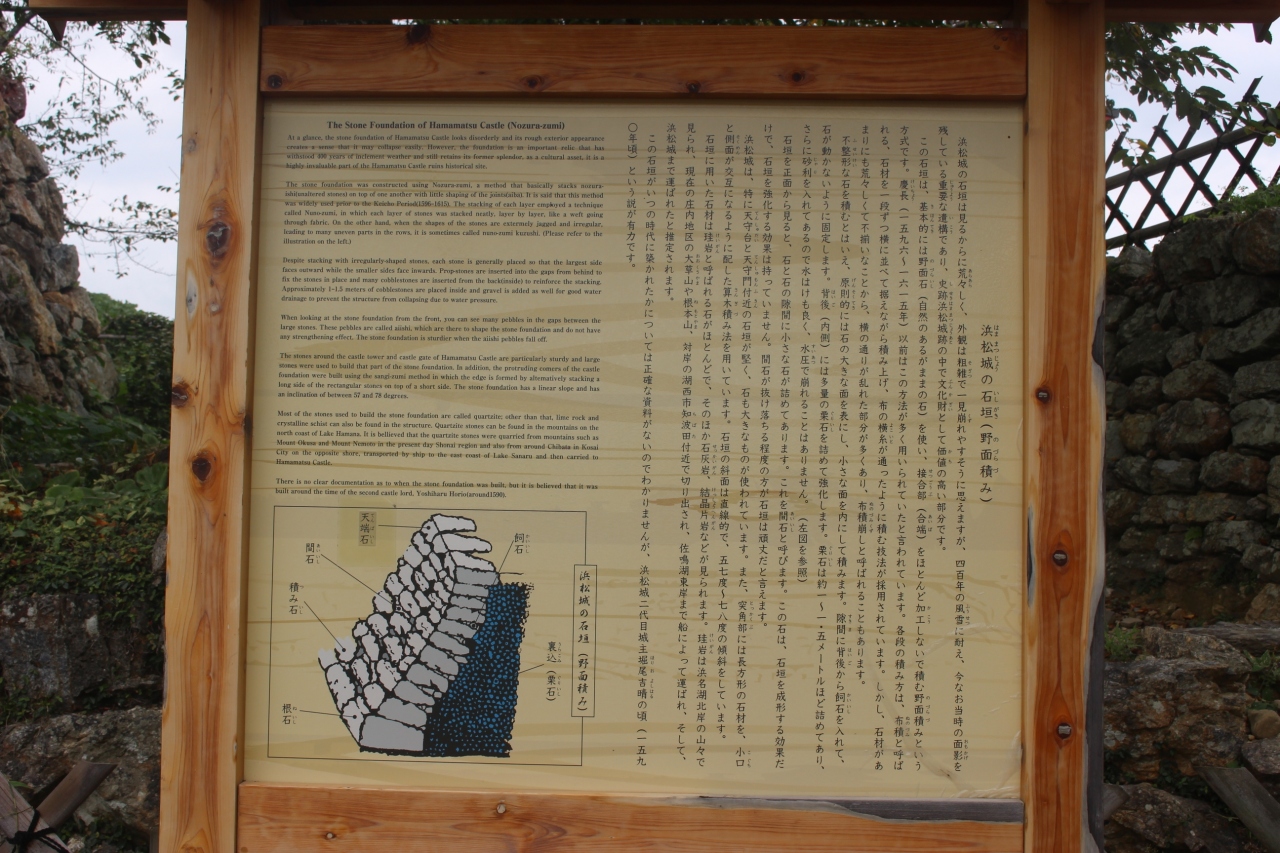 The Stone Foundation of Hamamatsu Castle (Nozuru-zumi)
At a glance, the stone foundation of Hamamatsu Castle looks disorderly and its rough exterior appearance
creates a sense that it may collapse easily. However, the foundation is an important relic that has
withstood 400 years of inclement weather and still retains its former splendor, as a cultural asset, it is a
highly invaluable part of the Hamamatsu Castle ruins historical site.
The stone foundation was constructed using Nozuru-zumi, a method that basically stacks nozura-
ishi(unaltered stones) on top of one another with little shaping of the joints(aiba). It is said that this method
was widely used prior to the Keicho Period(1596-1615). The stacking of each layer employed a technique
called Nuno-zumi, in which each layer of stones was stacked neatly, layer by layer, like a weft going
through fabric. On the other hand, when the shapes of the stones are extremely jagged and irregular,
leading to many uneven parts in the rows, it is sometimes called nuno-zumi kuzushi. (Please refer to the
illustration on the left.)
Despite stacking with irregularly-shaped stones, each stone is generally placed so that the largest side
faces outward while the smaller sides face inwards. Prop-stones are inserted into the gaps from behind to
fix the stones in place and many cobblestones are inserted from the back(inside) to reinforce the stacking.
Approximately 1-1.5 meters of cobblestones are placed inside and gravel is added as well for good water
drainage to prevent the structure from collapsing due to water pressure.
When looking at the stone foundation from the front, you can see many pebbles in the gaps between the
large stones. These pebbles are called aiishi, which are there to shape the stone foundation and do not have
any strengthening effect. The stone foundation is sturdier when the aiishi pebbles fall off.
The stones around the castle tower and castle gate of Hamamatsu Castle are particularly sturdy and large
stones were used to build that part of the stone foundation. In addition, the protruding corners of the castle
foundation were built using the sangi-zumi method in which the edge is formed by alternatively stacking a
long side of the rectangular stones on top of a short side. The stone foundation has a linear slope and has
an inclination of between 57 and 78 degrees.
Most of the stones used to build the stone foundation are called quartzite; other than that, lime rock and
crystalline schist can also be found in the structure. Quartzite stones can be found in the mountains on the
north coast of Lake Hamana. It is bellieved that the quartzite stones were quarried from mountains such as
Mount Okusa and Mount Nemoto in the present day Shonai region and also from around Chibata in Kosai
City on the opposite shore, transported by ship to the east coast of Lake Sanaru and then carried to
Hamamatsu Castle.
There is no clear documentation as to when the stone foundation was built, but it is believed that it was
built around the time of the second castle lord, Yoshiharu Horio(around1590).
浜松城の石垣(野面積み)
浜松城の石垣は見るからに荒々しく、外観は粗雑で一見崩れやすそうに思えますが、四百年の風雪に耐え、今なお当時の面影を
残している重要な遺構であり、史跡浜松城跡の中で文化財として価値の高い部分です。
この石垣は、基本的には野面石(自然のあるがままの石)を使い、接合部(合端)をほとんど加工しないで積む野面積みという
方式です。慶長(一五九六〜一六一五年)以前はこの方法が多く用いられていたと言われています。各段の積み方は、布積と呼ば
れる、石材を一段ずつ横に並べて据えながら積み上げ、布の横糸が通ったように積む技法が採用されています。しかし、石材があ
まりにも荒々しくて不揃いなことから、横の通りが乱れた部分が多くあり、布積崩しと呼ばれることもあります。
(左図を参照)
不整形な石を積むとはいえ、原則的には石の大きな面を表にし、小さな面を内にして積みます。隙間に背後から飼石を入れて、
石が動かないように固定します。背後(内側)には多量の栗石を詰めて強化します。栗石は約一〜一・五メートルほど詰めてあり、
さらに砂利を入れてあるので水はけも良く、水圧で崩れることはありません。
石垣を正面から見ると、石と石の隙間に小さな石が詰めてあります。これを間石と呼びます。この石は、石垣を成形する効果だ
けで、石垣を強化する効果は持っていません。間石が抜け落ちる程度の方が石垣は頑丈だと言えます。
浜松城は、特に天守台と天守門付近の石垣が堅く、石も大きなものが使われています。また、突角部には長方形の石材を、小口
と側面が交互になるように配した算木積み法を用いています。石垣の斜面は直線的で、五七度〜七八度の傾斜をしています。
石垣に用いた石材は珪岩と呼ばれる石がほとんどで、そのほか石灰岩、結晶片岩などが見られます。珪岩は浜名湖北岸の山々で
見られ、現在の庄内地区の大草山や根本山、対岸の湖西市知波田付近で切り出され、佐鳴湖東岸まで船によって運ばれ、そして、
浜松城まで運ばれたと推定されます。
この石垣がいつの時代に築かれたかについては正確な資料がないのでわかりませんが、浜松城二代目城主堀尾吉晴の頃(一五九
〇年頃)という説が有力です。
浜松城の石垣(野面積み)
天端石
飼石
間石
積み石
裏込(栗石)
根石